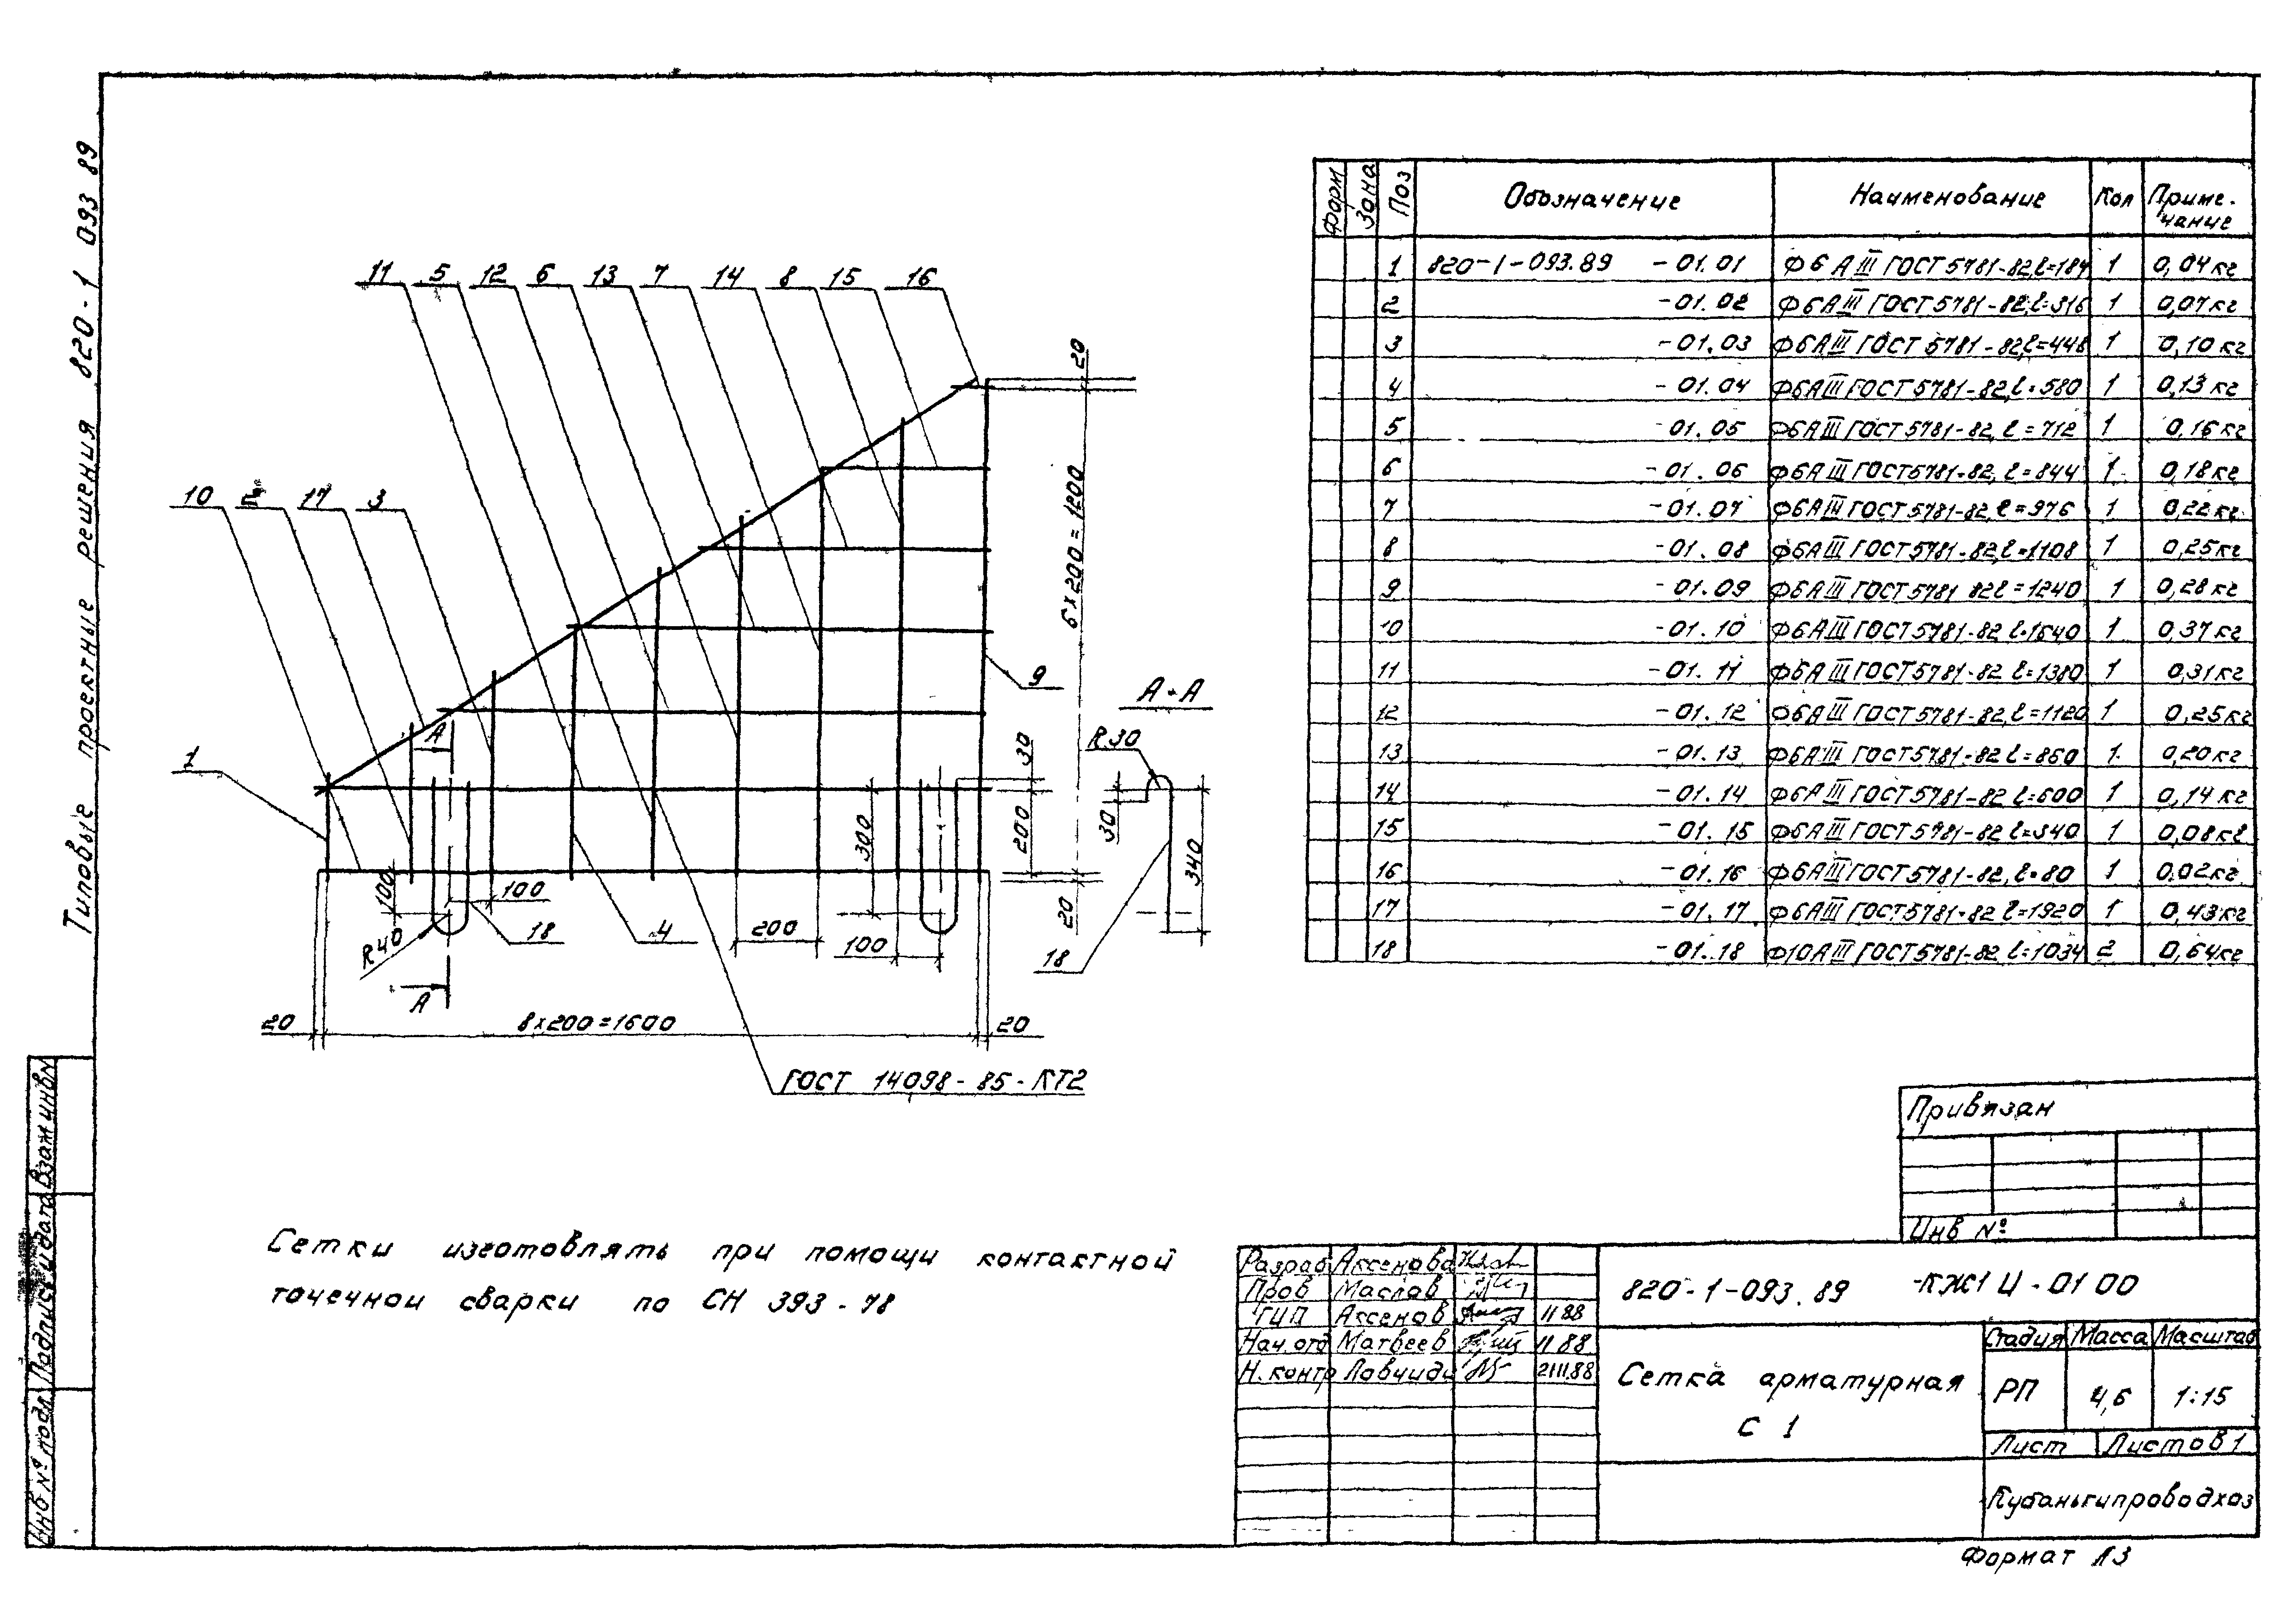 Типовые проектные решения 820-1 093 89
11 5 12 6 13 7 14 8 15 16
10 2 17 3
1
9
20
6×200=1200
30
200
20
300
100
100
R40
18
4
200
100
A
A
20 8×200=1600 20
ГОСТ 14098-85-КТ2
А-А
R30
30
340
18
Форм Зона Поз Обозначение Наименование Кол Приме-чание
1 820-1-093.89 -01.01 Ф6АIII ГОСТ 5781-82,l=184 1 0,04кг
2 -01.02 Ф6АIII ГОСТ 5781-82,l=316 1 0,07кг
3 -01.03 Ф6АIII ГОСТ 5781-82,l=448 1 0,10кг
4 -01.04 Ф6АIII ГОСТ 5781-82,l=580 1 0,13кг
5 -01.05 Ф6АIII ГОСТ 5781-82,l=712 1 0,16кг
6 -01.06 Ф6АIII ГОСТ 5781-82,l=844 1 0,18кг
7 -01.07 Ф6АIII ГОСТ 5781-82,l=976 1 0,22кг
8 -01.08 Ф6АIII ГОСТ 5781-82,l=1108 1 0,25кг
9 -01.09 Ф6АIII ГОСТ 5781 82l=1240 1 0,28кг
10 -01.10 Ф6АIII ГОСТ 5781-82 l=1640 1 0,37кг
11 -01.11 Ф6АIII ГОСТ 5781-82 l=1380 1 0,31кг
12 -01.12 Ф6АIII ГОСТ 5781-82,l=1120 1 0,25кг
13 -01.13 Ф6АIII ГОСТ 5781-82 l=860 1 0,20кг
14 -01.14 Ф6АIII ГОСТ 5781-82 l=600 1 0,14кг
15 -01.15 Ф6АIII ГОСТ 5781-82 l=340 1 0,08кг
16 -01.16 Ф6АIII ГОСТ 5781-82,l=80 1 0,02кг
17 -01.17 Ф6АIII ГОСТ 5781-82 l=1920 1 0,43кг
18 -01.18 Ф10АIII ГОСТ 5781-82,l=1034 2 0,64кг
Сетки изготовлять при помощи контактной
точечной сварки по СН 393-78
Привязан
Инв №
Разраб Аксенова
Пров Маслав
ГИП Аксенов 11 88
Нач.отд Матвеев 11 88
Н.контр 21 11.88
820-1-093.89 -КЖ1 И-01 00
Сетка арматурная
С 1
Стадия Масса Масштаб
РП 4,6 1:15
Лист Листов 1
Кубаньгипроводхоз
Формат А3
Инв № подл Подпись и дата Взам инв№